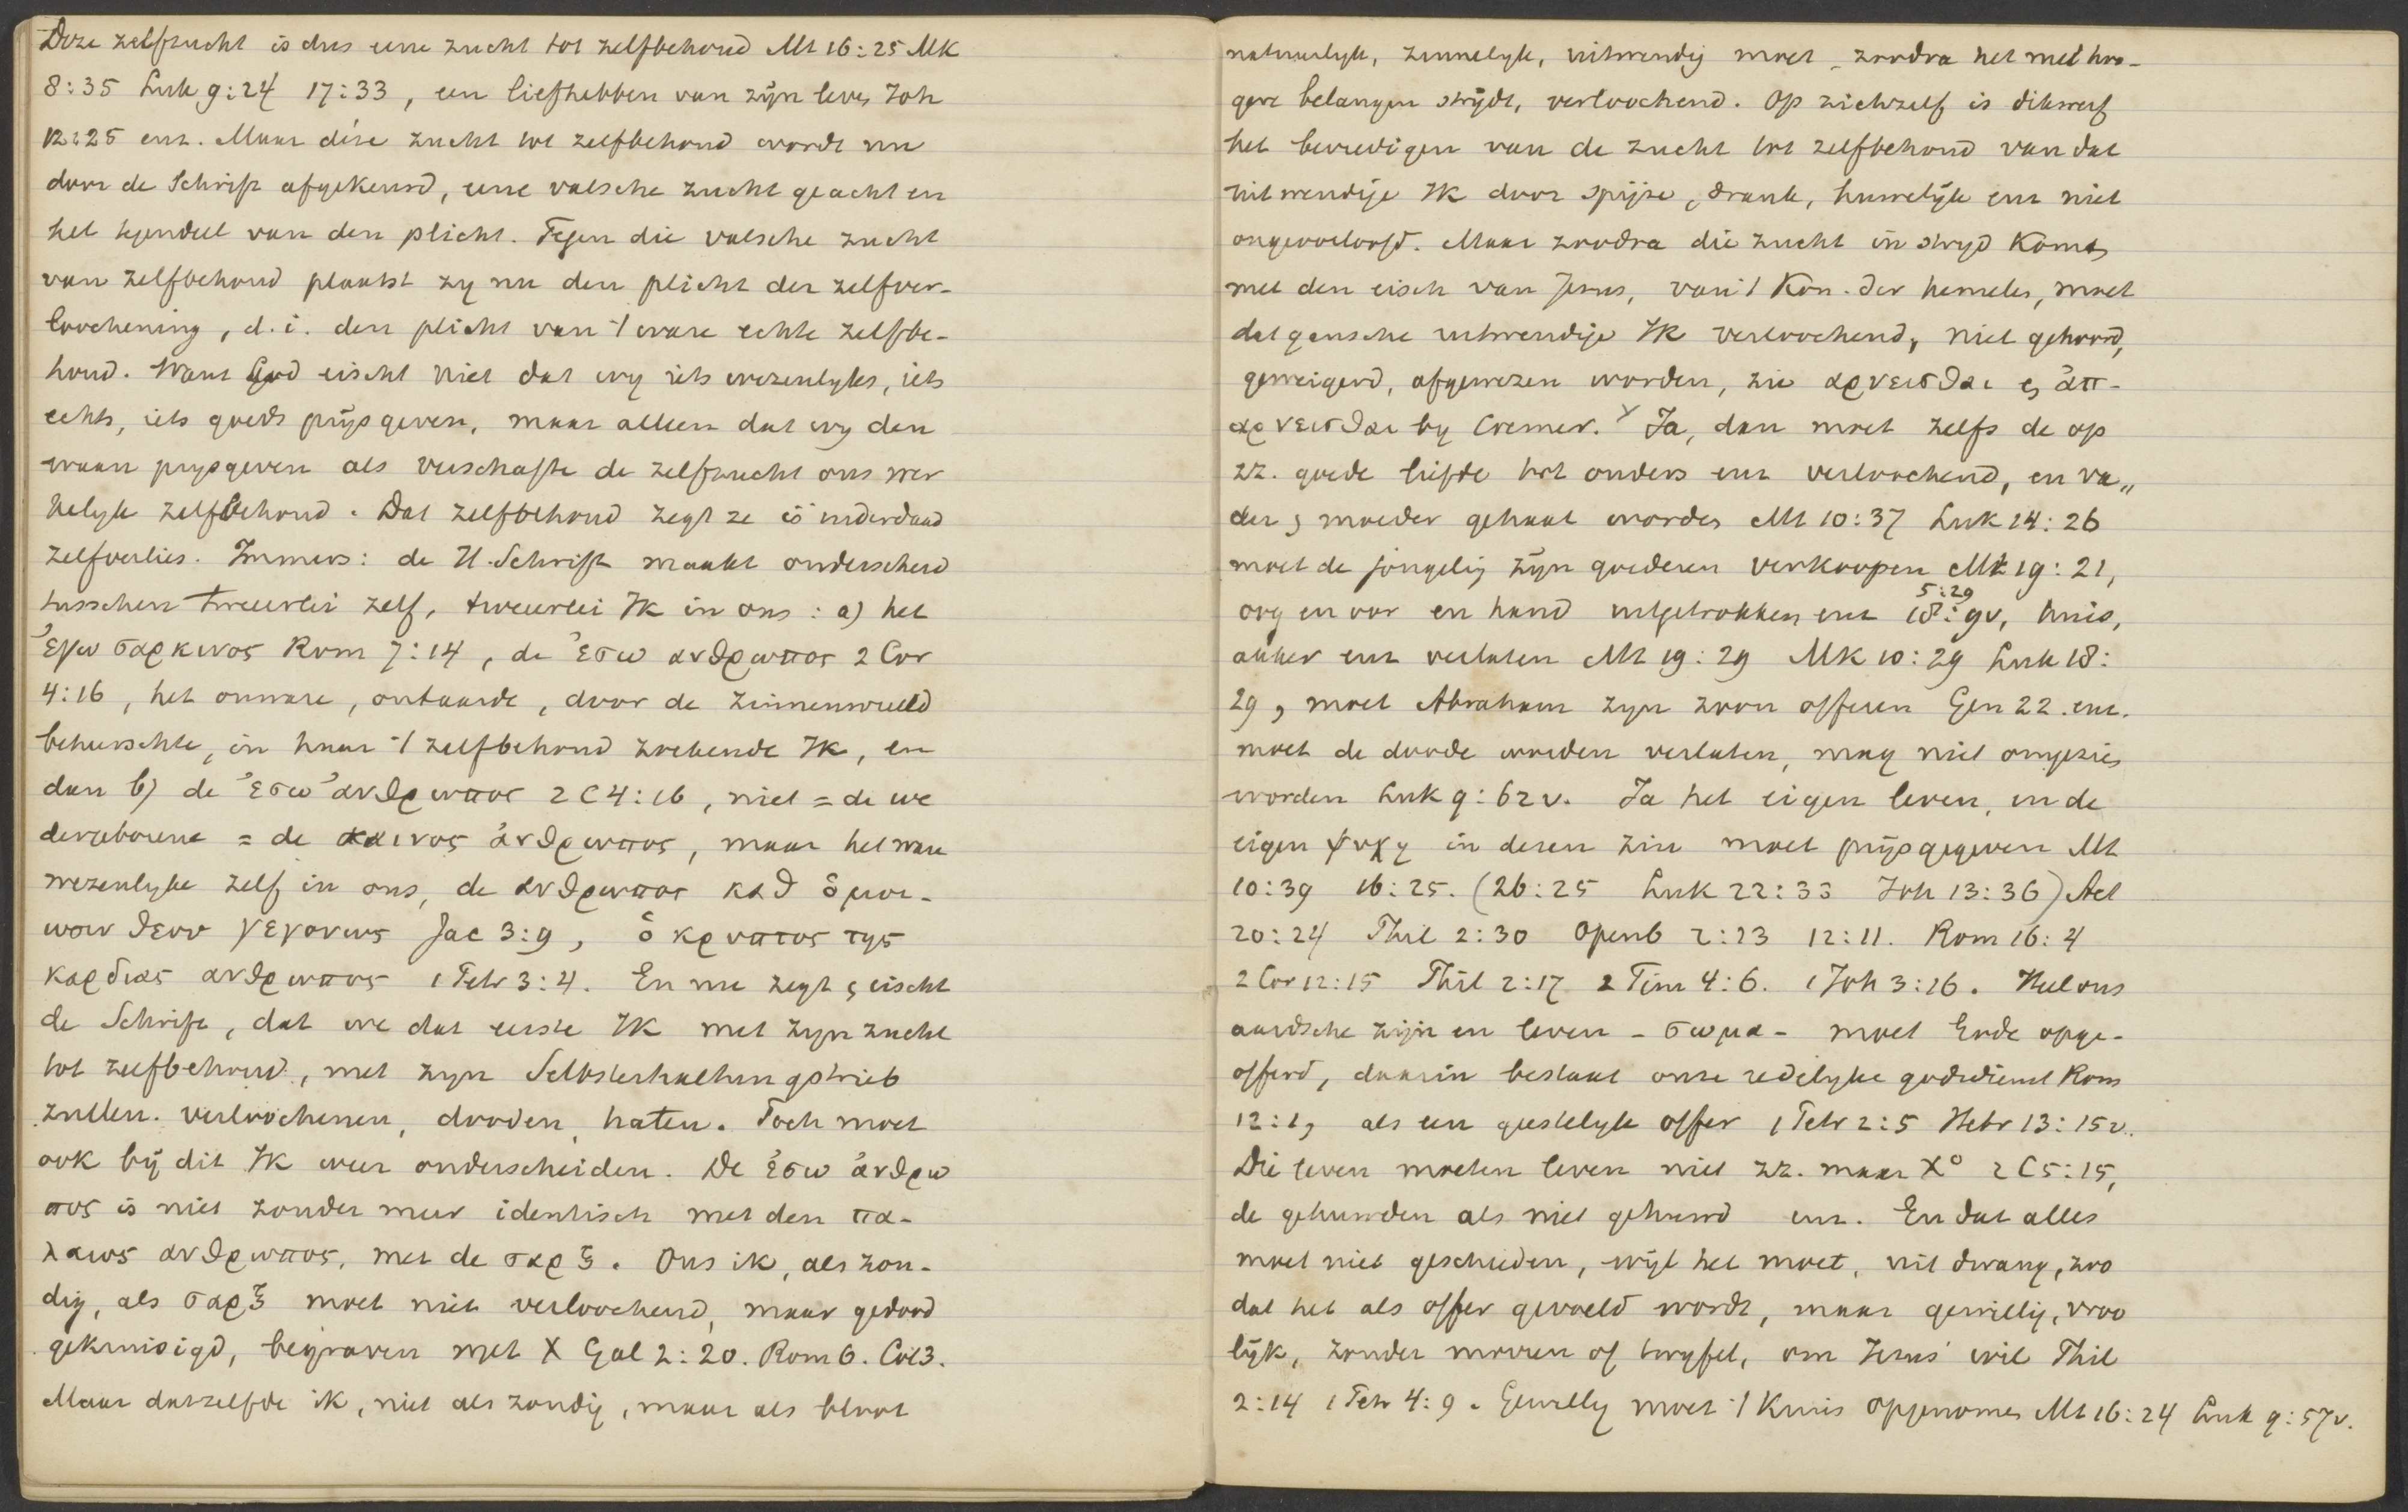 Deze zelfzucht is dus eene zucht tot zelfbehoud Mt 16:25 Mk
8:35 Luk 9:24 17:33, een liefhebben van zijn leven Joh
12:25 enz. Maar díe zucht tot zelfbehoud wordt nu
door de Schrift afgekeurd, eene valsche zucht geacht en
het tegendeel van den plicht. Tegen die valsche zucht
van zelfbehoud plaatst zy nu den plicht der zelfver-
loochening, d.i. den plicht van 't ware echte zelfbe-
houd. Want God eischt niet dat wy iets wezenlyks, iets
echts, iets goeds prijsgeven, maar alleen dat wy den
waan prysgeven als verschafte de zelfzucht ons wer
kelyk zelfbehoud. Dat zelfbehoud zegt ze is inderdaad
zelfverlies. Immers: de H. Schrift maakt onderscheid
tusschen tweeerlei zelf, tweeerlei Ik in ons: a) het
ἐγω σαρκινος Rom 7:14, de ἐσω ανθρωπος 2 Cor
4:16, het onware, ontaarde, door de zinnenwereld
beheerschte, in haar 't zelfbehoud zoekende Ik, en
dan b) de ἐσω ἀνθρωπος 2 C 4:16, niet = de we
dergeborene = de καινος ἀνθρωπος, maar het ware
wezenlyke zelf in ons, de ανθρωπος καθ ὁμοι-
ωσιν θεου γεγονως Jac 3:9, ὁ κρυπτος της
καρδιας ανθρωπος 1 Petr 3:4. En nu zegt en eischt
de Schrift, dat we dat eerste Ik met zyn zucht
tot zelfbehoud, met zyn Selbsterhaltungstrieb
zullen verloochenen, dooden, haten. Toch moet
ook bij dit Ik weer onderscheiden. De ἐσω ἀνθρω
πος is niet zonder meer identisch met den πα-
λαιος ανθρωπος, met de σαρξ. Ons ik, als zon-
dig, als σαρξ moet niet verloochend, maar gedood
gekruisigd, begraven met X Gal 2:20. Rom 6. Col 3.
Maar datzelfde ik, niet als zondig, maar als bloot
natuurlyk, zinnelyk, uitwendig moet, zoodra het met hoo-
gere belangen strijdt, verloochend. Op zichzelf is dikwerf
het bevredigen van de zucht tot zelfbehoud van dat
uitwendige Ik door spijze, drank, huwelijk enz niet
ongeoorloofd. Maar zoodra die zucht in stryd komt
met den eisch van Jezus, van 't Kon. der hemelen, moet
dat gansche uitwendige Ik verloochend, niet gehoord,
geweigerd, afgewezen worden, zie αρνεισθαι en ἀπ-
αρνεισθαι by Cremer. Ja, dan moet zelfs de op
zz. goede liefde tot ouders enz verloochend, en va„
der en moeder gehaat worden Mt 10:37 Luk 14:26
moet de jongeling zijn goederen verkoopen Mt 19:21,
5:29
oog en oor en hand uitgetrokken enz 18:9v, huis,
akker enz verlaten Mt 19:29 Mk 10:29 Luk 18:
29, moet Abraham zyn zoon offeren Gen 22. enz.
moet de doode worden verlaten, mag niet omgezien
worden Luk 9:62v. Ja het eigen leven, en de
eigen ψυχη in dezen zin moet prijsgegeven Mt
10:39 16:25. (26:25 Luk 22:33 Joh 13:36) Act
20:24 Phil 2:30 Openb 2:23 12:11. Rom 16:4
2 Cor 12:15 Phil 2:17 2 Tim 4:6. 1 Joh 3:16. Heel ons
aardsche zijn en leven - σωμα - moet Gode opge-
offerd, daarin bestaat onze redelyke godsdienst Rom
12:1, als een geestelyk offer 1 Petr 2:5 Hebr 13:15v.
Die leven moeten leven niet zz. maar X° 2 C 5:15,
de gehuwden als niet gehuwd enz. En dat alles
moet niet geschieden, wijl het moet, uit dwang, zoo
dat het als offer gevoeld wordt, maar gewillig, vroo
lijk, zonder morren of twyfel, om Jezus' wil Phil
2:14 1 Petr 4:9. Gewillig moet 't Kruis opgenomen Mt 16:24 Luk 9:57v.